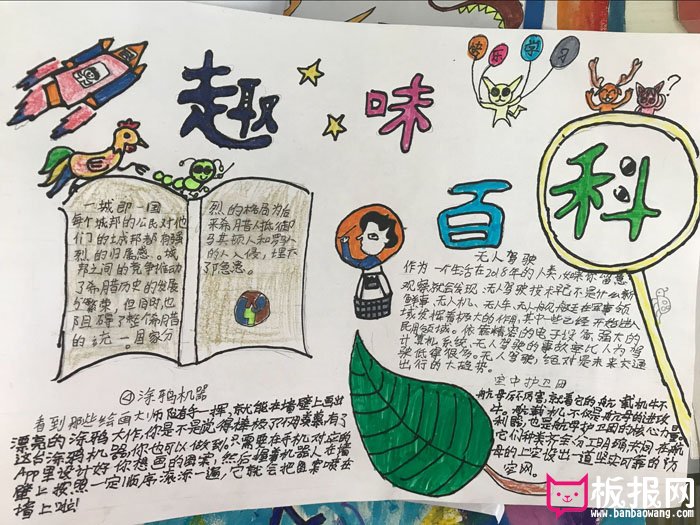 趣味百科
快乐学习
?
一城即一国
每个城邦的公民对他
们的土城邦都有强
烈的归属感。城
邦之间的竞争推动
了希腊历史的发展
与繁荣,但同时也
阻碍了整个希腊
的统一。国家分
烈的格局为后
来希腊人抵御
马其顿人和罗马
人的入侵,埋下
了隐患。
无人驾驶
作为一个生活在2018年的人类,如果你留意
观察就会发现,无人驾驶技术早已不是什么新
鲜事,无人机、无人车、无人舰艇在军事领
域发挥着极大的作用,其中一些已经开始进入
民用领域。依靠精密的电子设备,强大的
计算机系统,无人驾驶的事故率比人为驾
驶低得很多。无人驾驶,绝对是未来交通
出行的大趋势。
空中护卫团
航母厉不厉害,就看它的航载机牛不
牛。航载机,不仅是航母的进攻
利器,也是航母护卫团的核心力量
它们种类齐全,分工明确,共同在航
母的上空设出一道坚实可靠的防
空网。
④涂鸦机器
看到那些绘画大师随手一挥,就能在墙壁上画出
漂亮的涂鸦大作,你是不是觉得棒极了?不用羡慕,有了
这台涂鸦机器,你也可以做到,只需要在手机对应的
App里设计好你想画的图案,然后握着机器人在墙
壁上按照一定顺序滚涂一遍,它就会把图案喷在
墙上啦!
板报网
www.banbaowang.com